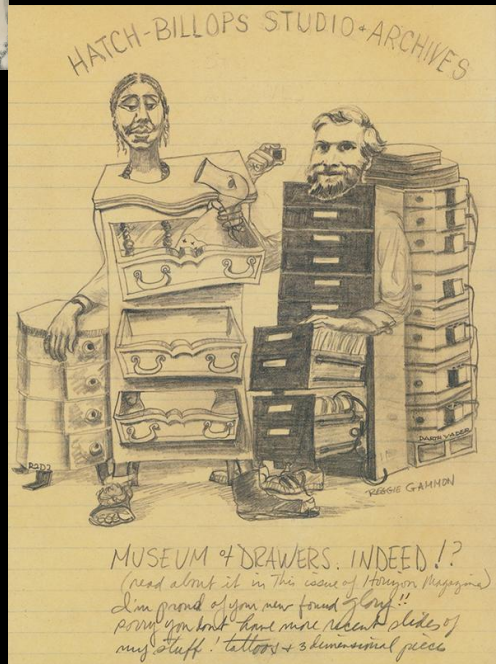 HATCH-BILLOPS STUDIO + ARCHIVES
R2D2
DARTH VADER
REGGIE GAMMON
MUSEUM of DRAWERS. INDEED!?
(read about it in this issue of Horizon Magazine)
I'm proud of your new found glory!!
sorry you dont have more recent slides of
my stuff! tattoos + 3 dimensional pieces